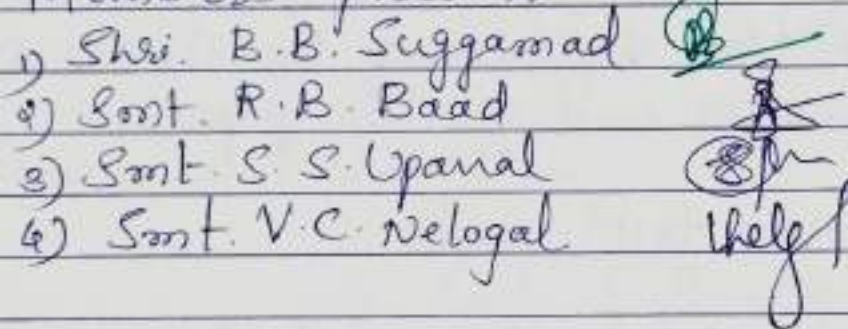 1) Shri. B.B. Suggamad
2) Smt. R.B. Baad
3) Smt. S. S. Upanal
4) Smt. V.C. Nelogal